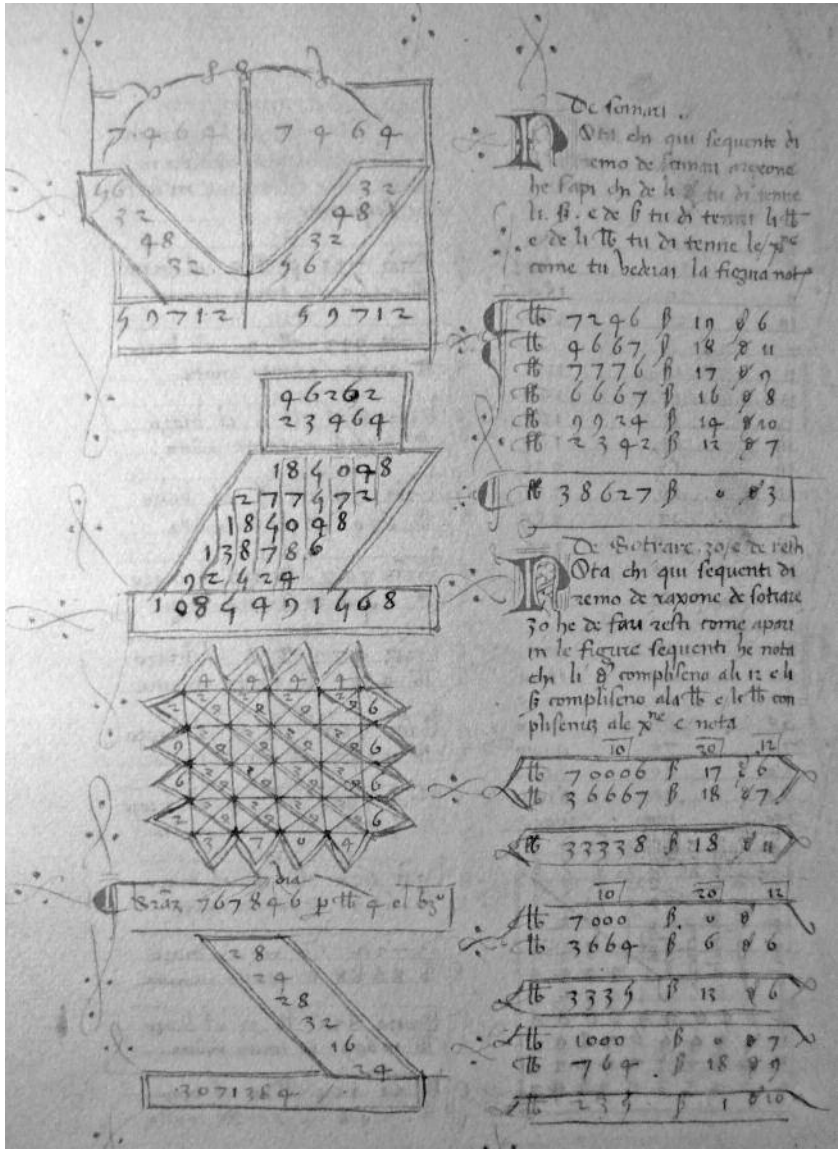 7 4 6 4 7 4 6 4
56 32
32 48
48 32
32 56
59712 59712
46262
23464
185048
277572
185048
138786
92524
1085491568
4 4 4 4
3 7 0 4
767846 p lb 4 el
28
24
28
32
16
24
3071384
De sonnari.
Nota chi qui sequente di
remo de sonnari
he sapi chi de li δ tu di tenne
li. ß. e de ß tu di tenni li lb
e de li lb tu di tenne le xne
come tu vederai la figura not
lb 7246 ß 19 δ 6
lb 4667 ß 18 δ 11
lb 7776 ß 17 δ 9
lb 6667 ß 16 δ 8
lb 9924 ß 14 δ 10
lb 2342 ß 12 δ 7
lb 38627 ß 0 δ 3
De Sotrare. zo/e de resti
Nota chi qui sequenti di
remo de raxone de sotrare
zo he de fari resti come apari
in le figure sequenti he nota
chi li δ compliseno ali 12 e li
ß compliseno ala lb e le lb con
pliseno ale xne e nota
10 20 12
lb 70006 ß 17 δ 6
lb 36667 ß 18 δ 7
lb 33338 ß 18 δ 11
10 20 12
lb 7000 ß. 0 δ
lb 3664 ß 6 δ 6
lb 3335 ß 13 δ 6
lb 1000 ß 0 δ 7
lb 764 ß 18 δ 9
lb 235 ß 1 δ 10